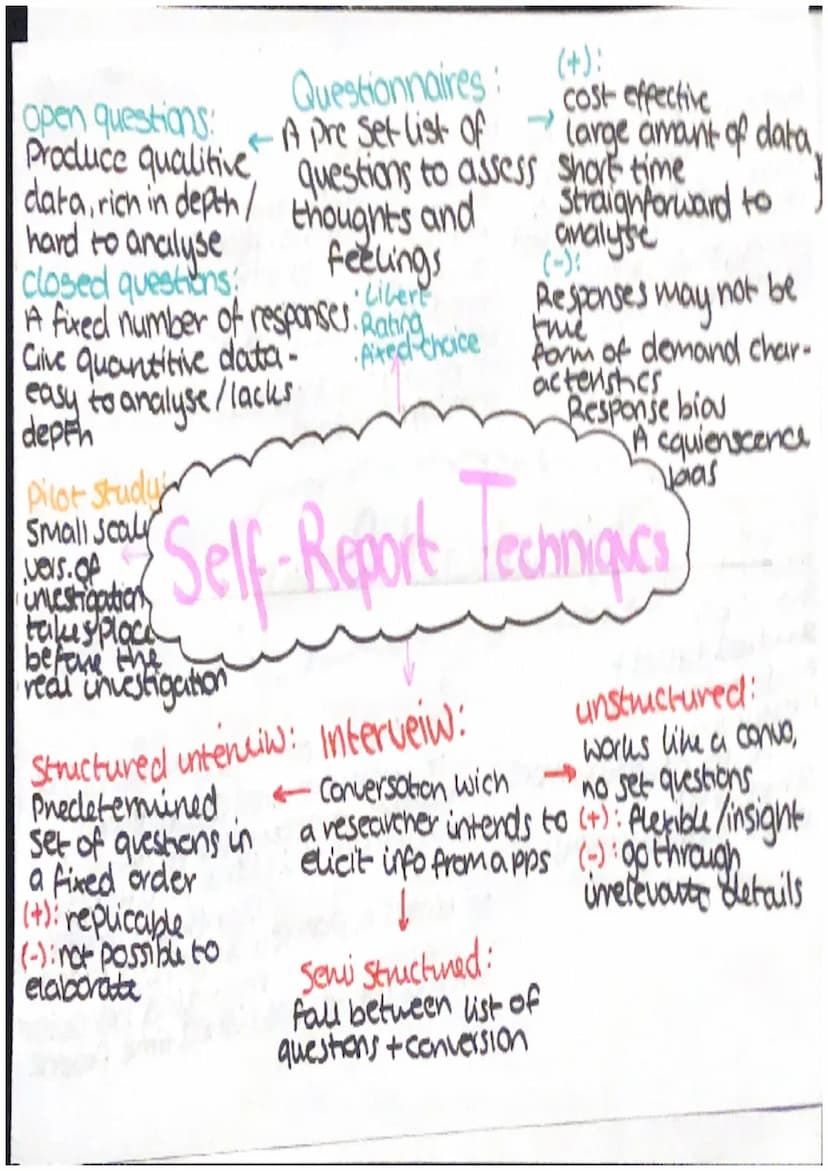 Questionnaires:
A pre set list of
questions to assess
thoughts and
feelings
Open questions:
Produce qualitive
data, rich in depth/
hard to analyse
closed questions:
A fixed number of responses.
Give quantitive data -
easy to analyse/lacks
depth
Likert
. Rating
. fixed-choice
(+):
cost effective
large amant of data,
short time
straighforward to
analyse
(-):
Responses may not be
true
form of demand char-
acteristics
Response bias
Acquienscence
bias
Self-Report Techniques
Pilot study:
Small scale
vers. of
investigation
takes place
before the
real investigation
Interveiw:
Conversation wich
a researcher intends to
elicit info from a pps
Structured interviw:
Predetermined
set of questions in
a fixed order
(+): replicable
(-): not possible to
elaborate
unstructured:
works like a convo,
no set questions
(+): flexible/insight
(-): go through
irrelevant details
Semi structured:
fall between list of
questions + conversion